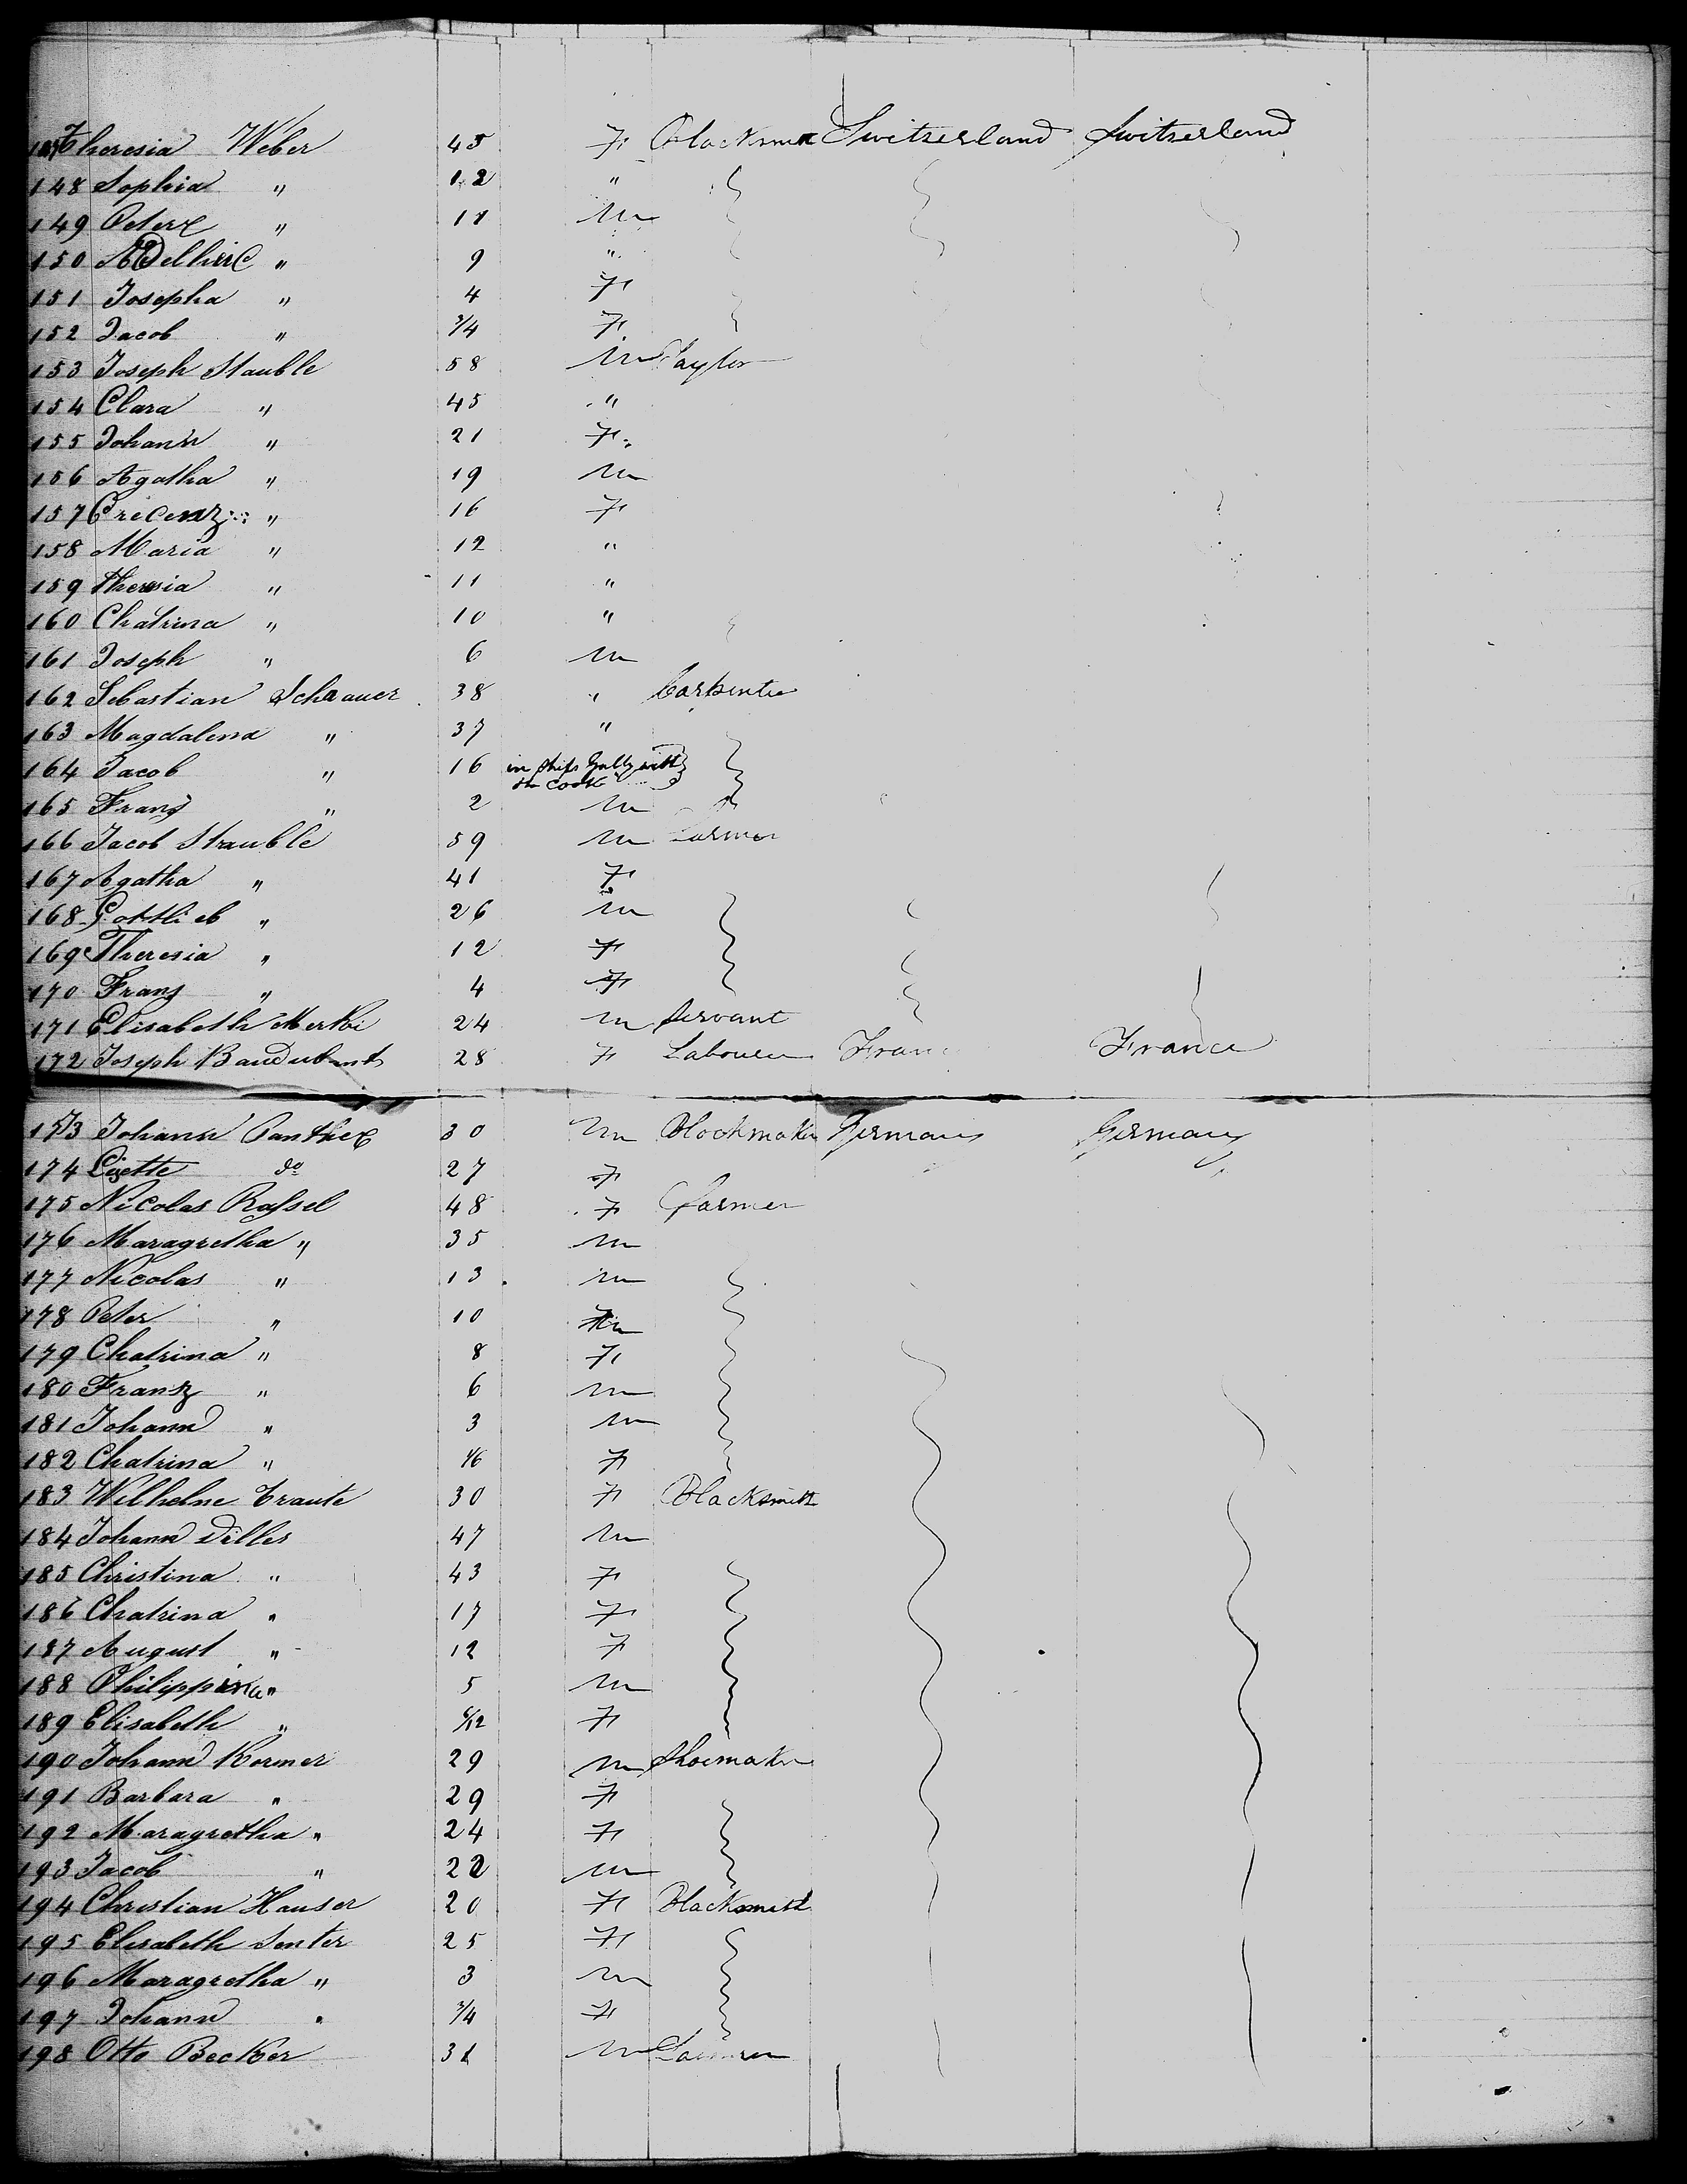 147 Theresia Weber 45 F Switserland Switserland
148 Sophia " 12 "
149 Peter " 11 m
150 " 9 "
151 Josepha " 4 F
152 Jacob " 3/4 F
153 Joseph Stauble 58 m Taylor
154 Clara " 45 "
155 Johann " 21 F
156 Agatha " 19 m
157 Cricenz " 16 F
158 Maria " 12 "
159 Theresia " 11 "
160 Chatrina " 10 "
161 Joseph " 6 m
162 Sebastian Schrauer 38 " Carpenter
163 Magdalena " 37 "
164 Jacob " 16 in ships Gally with
the cook
165 Franz " 2 m
166 Jacob Strauble 59 m Farmer
167 Agatha " 41 F
168 Gottlieb " 26 m
169 Theresia " 12 F
170 Franz " 4 F
171 Elisabeth Merkei 24 m Servant
172 Joseph 28 F Labourer France France
173 Johann Panther 30 m Blockmaker Germany Germany
174 Lizette do 27 F
175 Nicolas Rassel 48 F Farmer
176 Maragretha " 35 m
177 Nicolas " 13 m
178 Peter " 10 m
179 Chatrina " 8 F
180 Franz " 6 m
181 Johann " 3 m
182 Chatrina " 1/6 F
183 Wilhelne Traute 30 F Blacksmith
184 Johann Diller 47 m
185 Christina " 43 F
186 Chatrina " 17 F
187 August " 12 F
188 Philippina " 5 m
189 Elisabeth " 6/12 F
190 Johann Kormer 29 m Shoemaker
191 Barbara " 29 F
192 Maragretha " 24 F
193 Jacob " 22 m
194 Christian Hauser 20 F Blacksmith
195 Elisabeth Senter 25 F
196 Maragretha " 3 m
197 Johann " 3/4 F
198 Otto Becker 31 m